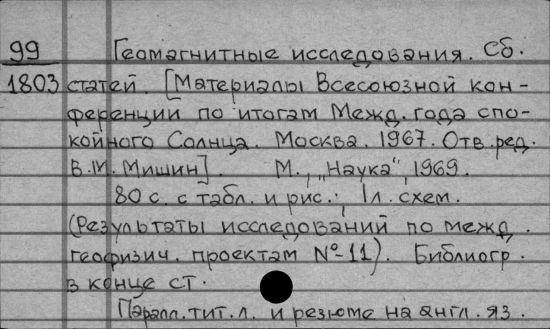 99 Геомагнитные исследования. Сб.
1803 статей. [Материалы Всесоюзной кон-
ференции по итогам Межд. года спо-
койного Солнца. Москва. 1967. Отв. ред.
В.М. Мишин]. М., „Наука“, 1969.
80 с. с табл. и рис.; 1 л. схем.
(Результаты исследований по межд.
геофизич. проектам №-11). Библиогр.
в конце ст.
Паралл. тит. л. и резюме на англ. яз.